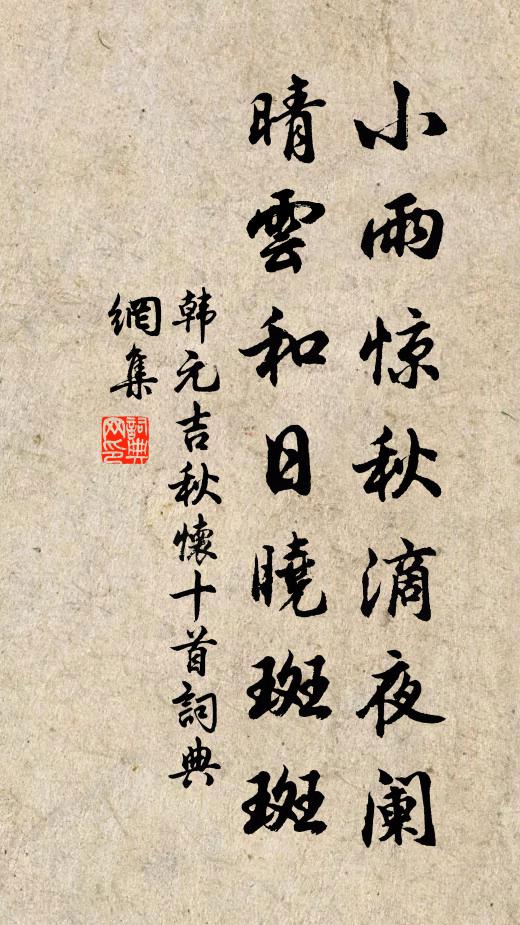 小雨惊秋滴夜阑
晴雲和日曉斑斑
韩元吉秋懷十首詞典
網集
詞典
网印